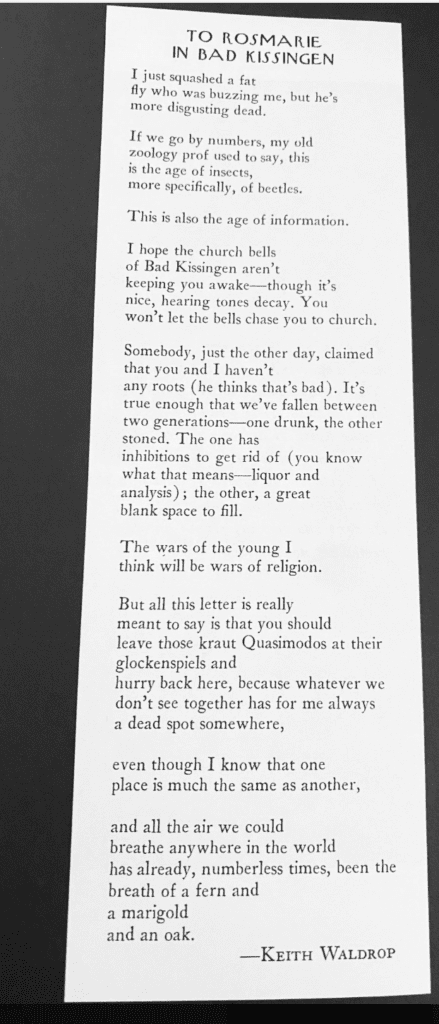 TO ROSMARIE
IN BAD KISSINGEN
I just squashed a fat
fly who was buzzing me, but he's
more disgusting dead.
If we go by numbers, my old
zoology prof used to say, this
is the age of insects,
more specifically, of beetles.
This is also the age of information.
I hope the church bells
of Bad Kissingen aren't
keeping you awake—though it's
nice, hearing tones decay. You
won't let the bells chase you to church.
Somebody, just the other day, claimed
that you and I haven't
any roots (he thinks that's bad). It's
true enough that we've fallen between
two generations—one drunk, the other
stoned. The one has
inhibitions to get rid of (you know
what that means—liquor and
analysis); the other, a great
blank space to fill.
The wars of the young I
think will be wars of religion.
But all this letter is really
meant to say is that you should
leave those kraut Quasimodos at their
glockenspiels and
hurry back here, because whatever we
don't see together has for me always
a dead spot somewhere,
even though I know that one
place is much the same as another,
and all the air we could
breathe anywhere in the world
has already, numberless times, been the
breath of a fern and
a marigold
and an oak.
—KEITH WALDROP